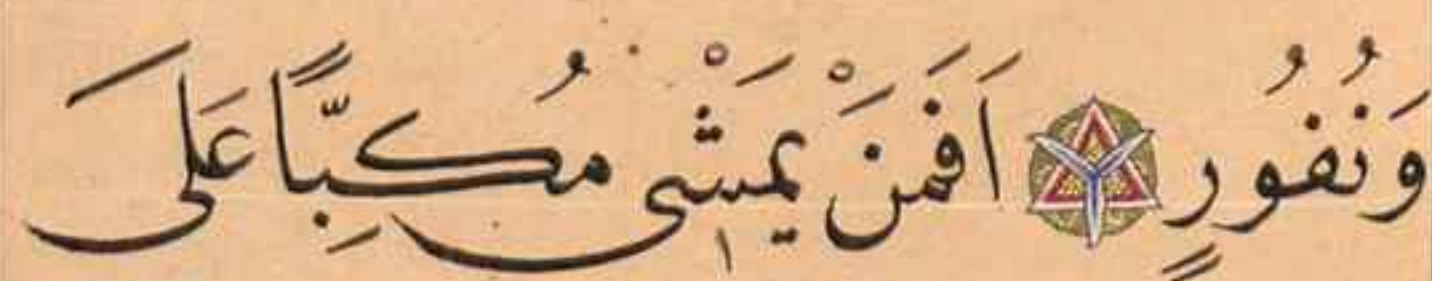 وَنُفُورٍ اَفَمَنْ يَمْشٖى مُكِبًّا عَلٰى